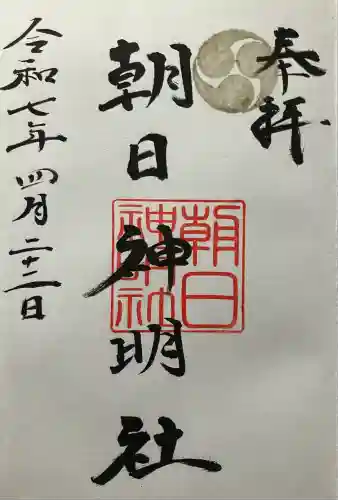 奉拝
朝日神明社
朝日
神明社
令和七年四月二十二日